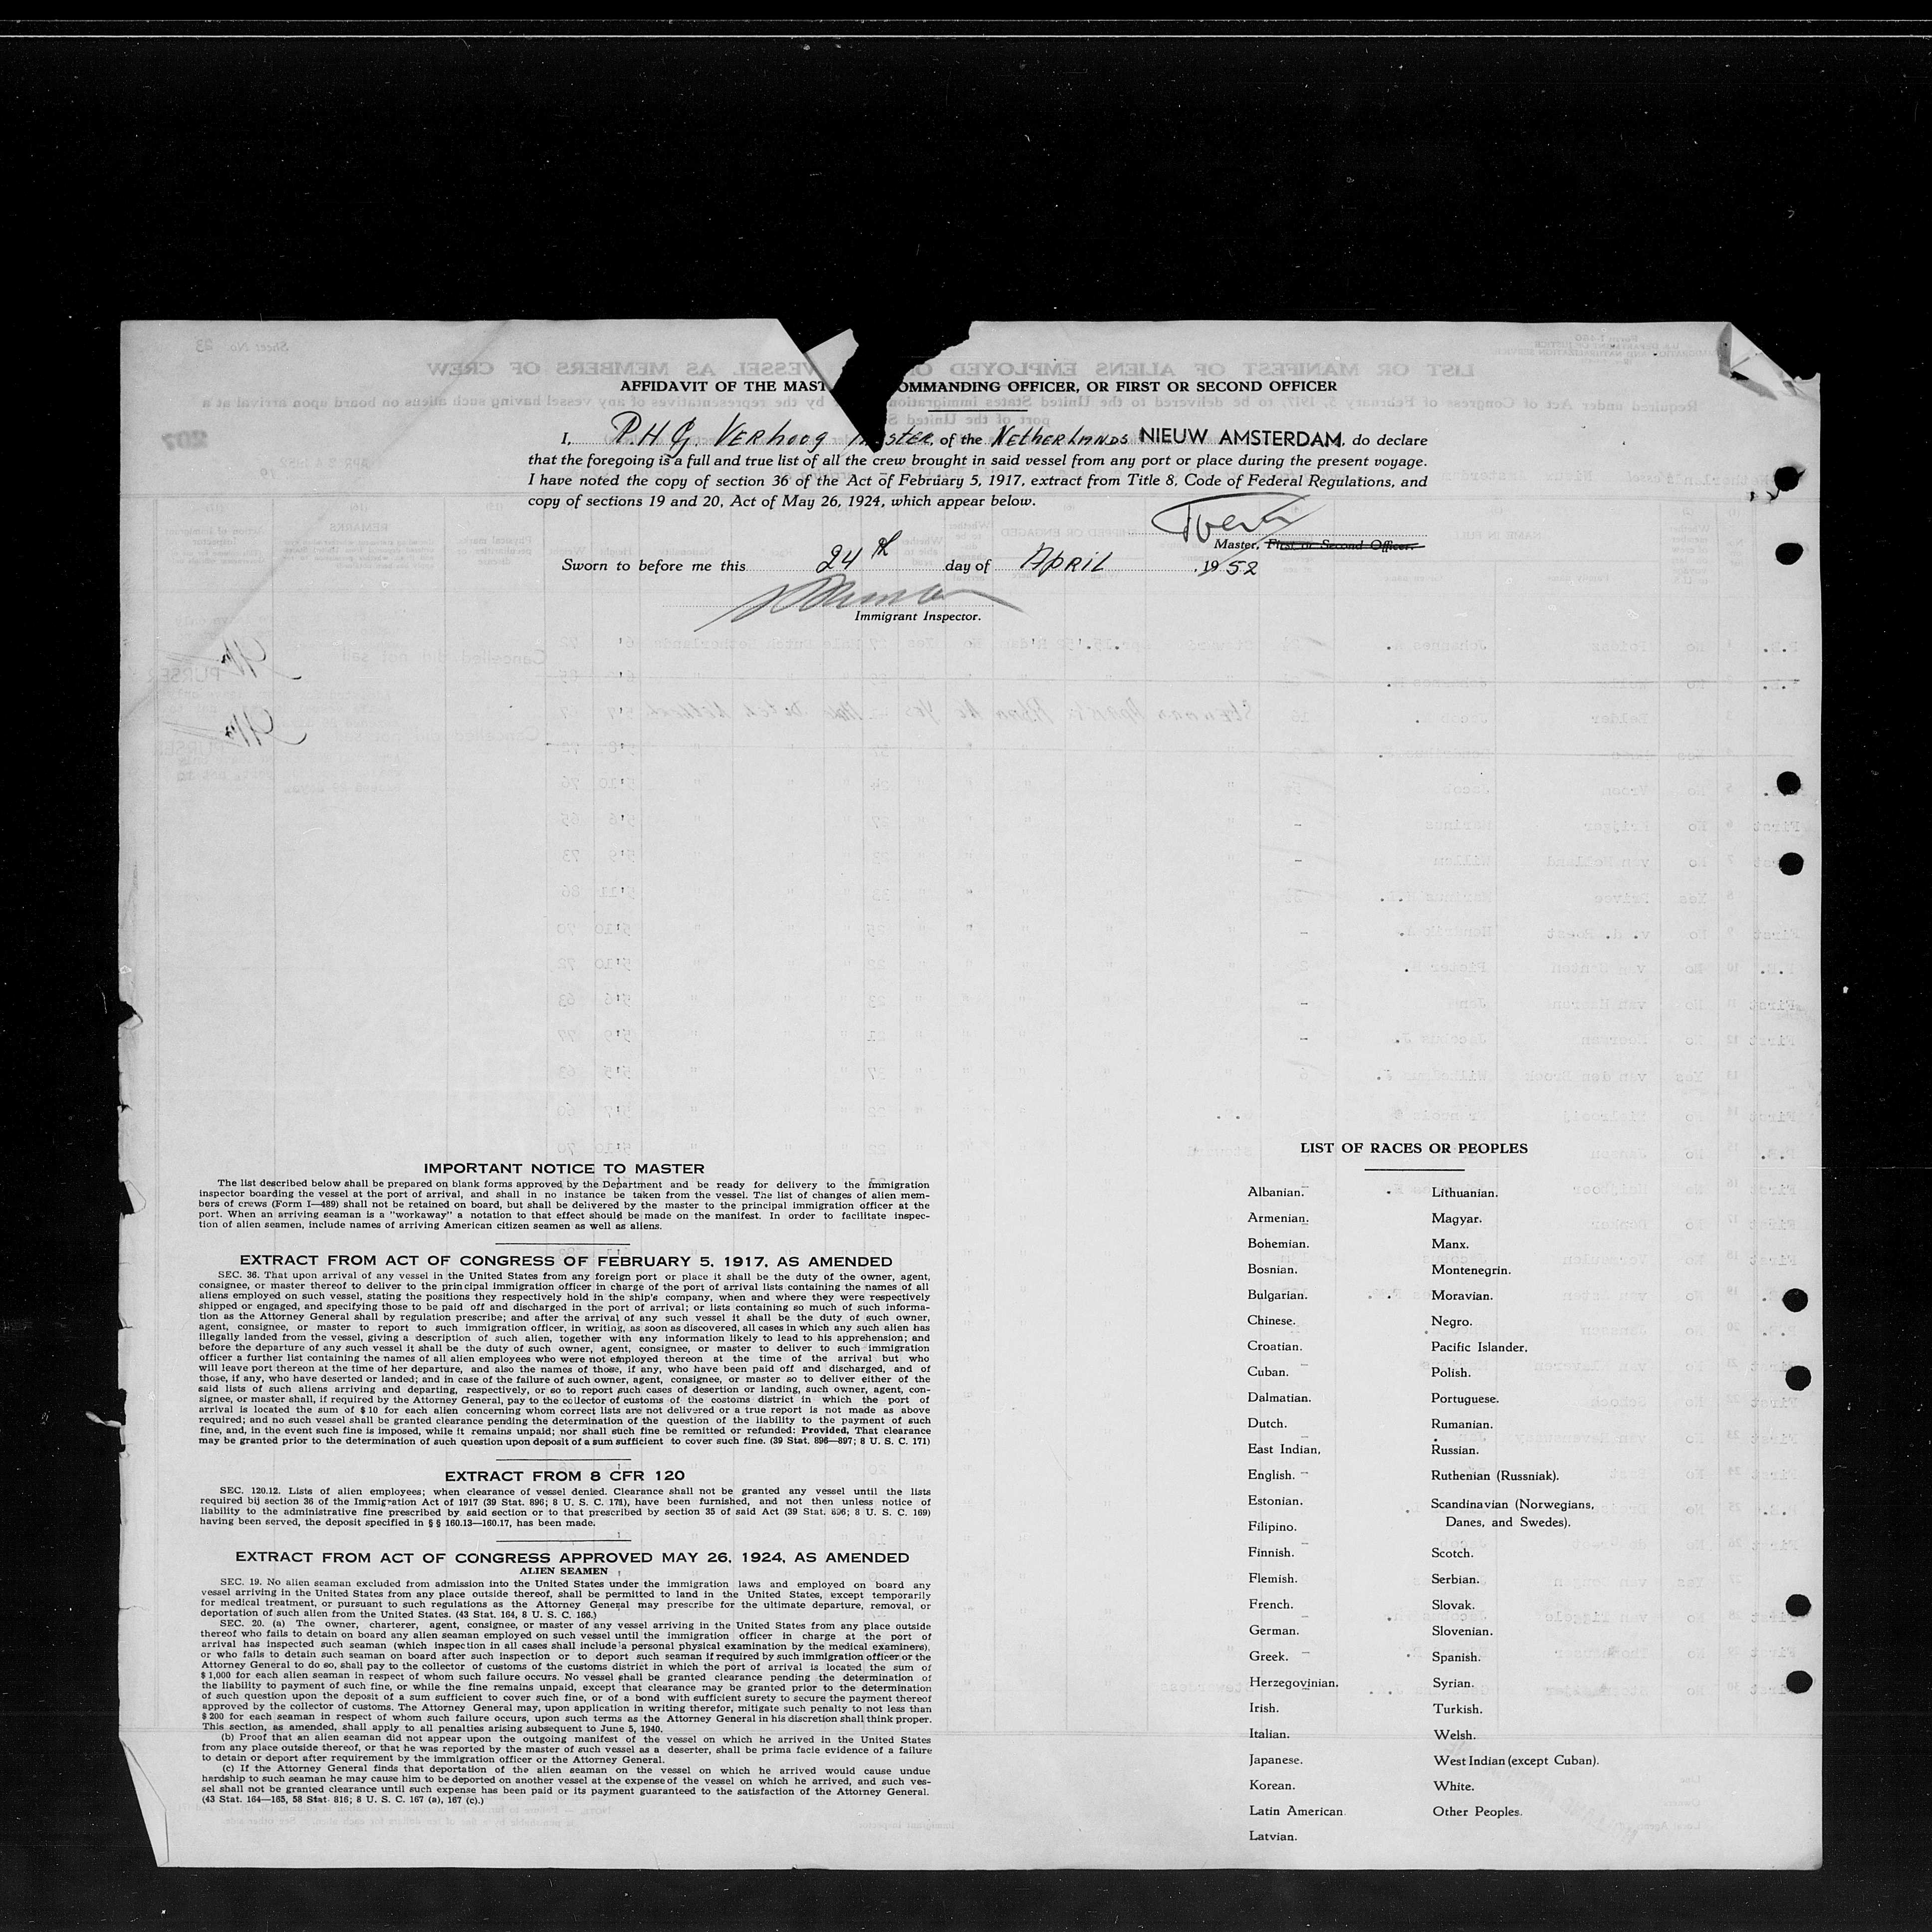 AFFIDAVIT OF THE MAST OMMANDING OFFICER, OR FIRST OR SECOND OFFICER
I, P.H.G. Verhoog Master, of the Netherlands NIEUW AMSTERDAM, do declare
that the foregoing is a full and true list of all the crew brought in said vessel from any port or place during the present voyage.
I have noted the copy of section 36 of the Act of February 5, 1917, extract from Title 8, Code of Federal Regulations, and
copy of sections 19 and 20, Act of May 26, 1924, which appear below.
Master, First or Second Officer.
Sworn to before me this 24th day of April, 1952
Immigrant Inspector.
IMPORTANT NOTICE TO MASTER
The list described below shall be prepared on blank forms approved by the Department and be ready for delivery to the immigration
inspector boarding the vessel at the port of arrival, and shall in no instance be taken from the vessel. The list of changes of alien mem-
bers of crews (Form I—489) shall not be retained on board, but shall be delivered by the master to the principal immigration officer at the
port. When an arriving seaman is a "workaway" a notation to that effect should be made on the manifest. In order to facilitate inspec-
tion of alien seamen, include names of arriving American citizen seamen as well as aliens.
EXTRACT FROM ACT OF CONGRESS OF FEBRUARY 5, 1917, AS AMENDED
SEC. 36. That upon arrival of any vessel in the United States from any foreign port or place it shall be the duty of the owner, agent,
consignee, or master thereof to deliver to the principal immigration officer in charge of the port of arrival lists containing the names of all
aliens employed on such vessel, stating the positions they respectively hold in the ship's company, when and where they were respectively
shipped or engaged, and specifying those to be paid off and discharged in the port of arrival; or lists containing so much of such informa-
tion as the Attorney General shall by regulation prescribe; and after the arrival of any such vessel it shall be the duty of such owner,
agent, consignee, or master to report to such immigration officer, in writing, as soon as discovered, all cases in which any such alien has
illegally landed from the vessel, giving a description of such alien, together with any information likely to lead to his apprehension; and
before the departure of any such vessel it shall be the duty of such owner, agent, consignee, or master to deliver to such immigration
officer a further list containing the names of all alien employees who were not employed thereon at the time of the arrival but who
will leave port thereon at the time of her departure, and also the names of those, if any, who have been paid off and discharged, and of
those, if any, who have deserted or landed; and in case of the failure of such owner, agent, consignee, or master so to deliver either of the
said lists of such aliens arriving and departing, respectively, or so to report such cases of desertion or landing, such owner, agent, con-
signee, or master shall, if required by the Attorney General, pay to the collector of customs of the costoms district in which the port of
arrival is located the sum of $ 10 for each alien concerning whom correct lists are not delivered or a true report is not made as above
required; and no such vessel shall be granted clearance pending the determination of the question of the liability to the payment of such
fine, and, in the event such fine is imposed, while it remains unpaid; nor shall such fine be remitted or refunded: Provided, That clearance
may be granted prior to the determination of such question upon deposit of a sum sufficient to cover such fine. (39 Stat. 896—897; 8 U. S. C. 171)
EXTRACT FROM 8 CFR 120
SEC. 120.12. Lists of alien employees; when clearance of vessel denied. Clearance shall not be granted any vessel until the lists
required bij section 36 of the Immigration Act of 1917 (39 Stat. 896; 8 U. S. C. 171), have been furnished, and not then unless notice of
liability to the administrative fine prescribed by said section or to that prescribed by section 35 of said Act (39 Stat. 896; 8 U. S. C. 169)
having been served, the deposit specified in § § 160.13—160.17, has been made.
EXTRACT FROM ACT OF CONGRESS APPROVED MAY 26, 1924, AS AMENDED
ALIEN SEAMEN
SEC. 19. No alien seaman excluded from admission into the United States under the immigration laws and employed on board any
vessel arriving in the United States from any place outside thereof, shall be permitted to land in the United States, except temporarily
for medical treatment, or pursuant to such regulations as the Attorney General may prescribe for the ultimate departure, removal, or
deportation of such alien from the United States. (43 Stat. 164, 8 U. S. C. 166.)
SEC. 20. (a) The owner, charterer, agent, consignee, or master of any vessel arriving in the United States from any place outside
thereof who fails to detain on board any alien seaman employed on such vessel until the immigration officer in charge at the port of
arrival has inspected such seaman (which inspection in all cases shall include a personal physical examination by the medical examiners),
or who fails to detain such seaman on board after such inspection or to deport such seaman if required by such immigration officer or the
Attorney General to do so, shall pay to the collector of customs of the customs district in which the port of arrival is located the sum of
$ 1,000 for each alien seaman in respect of whom such failure occurs. No vessel shall be granted clearance pending the determination of
the liability to payment of such fine, or while the fine remains unpaid, except that clearance may be granted prior to the determination
of such question upon the deposit of a sum sufficient to cover such fine, or of a bond with sufficient surety to secure the payment thereof
approved by the collector of customs. The Attorney General may, upon application in writing therefor, mitigate such penalty to not less than
$ 200 for each seaman in respect of whom such failure occurs, upon such terms as the Attorney General in his discretion shall think proper.
This section, as amended, shall apply to all penalties arising subsequent to June 5, 1940.
(b) Proof that an alien seaman did not appear upon the outgoing manifest of the vessel on which he arrived in the United States
from any place outside thereof, or that he was reported by the master of such vessel as a deserter, shall be prima facie evidence of a failure
to detain or deport after requirement by the immigration officer or the Attorney General.
(c) If the Attorney General finds that deportation of the alien seaman on the vessel on which he arrived would cause undue
hardship to such seaman he may cause him to be deported on another vessel at the expense of the vessel on which he arrived, and such ves-
sel shall not be granted clearance until such expense has been paid or its payment guaranteed to the satisfaction of the Attorney General.
(43 Stat. 164—165, 58 Stat. 816; 8 U. S. C. 167 (a), 167 (c).)
LIST OF RACES OR PEOPLES
Albanian.
Armenian.
Bohemian.
Bosnian.
Bulgarian.
Chinese.
Croatian.
Cuban.
Dalmatian.
Dutch.
East Indian,
English.
Estonian.
Filipino.
Finnish.
Flemish.
French.
German.
Greek.
Herzegovinian.
Irish.
Italian.
Japanese.
Korean.
Latin American.
Latvian.
Lithuanian.
Magyar.
Manx.
Montenegrin.
Moravian.
Negro.
Pacific Islander.
Polish.
Portuguese.
Rumanian.
Russian.
Ruthenian (Russniak).
Scandinavian (Norwegians,
Danes, and Swedes).
Scotch.
Serbian.
Slovak.
Slovenian.
Spanish.
Syrian.
Turkish.
Welsh.
West Indian (except Cuban).
White.
Other Peoples.